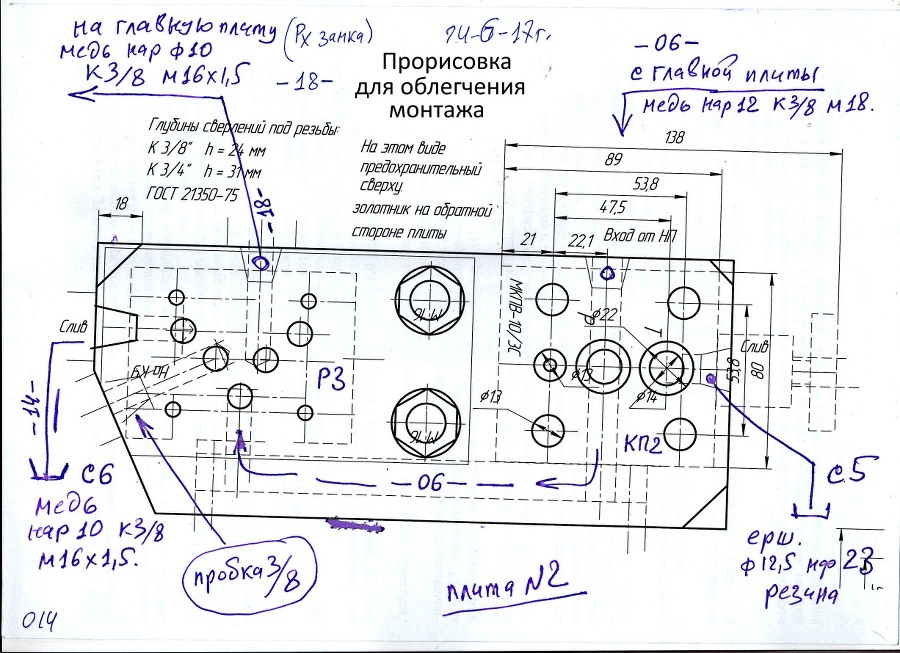 на главную плиту (Рх замка)
медь нар ф10
К 3/8 м16х1,5
-18-
14-6-17г.
Прорисовка
для облегчения
монтажа
-06-
с главной плиты
медь нар 12 К3/8 М18.
Глубины сверлений под резьбы:
К 3/8" h = 24 мм
К 3/4" h = 31 мм
ГОСТ 21350-75
На этом виде
предохранительный
сверху.
золотник на обратной
стороне плиты
138
89
53,8
47,5
21
22,1
Вход от НП
18
-18-
Слив
-14-
М 16
М 16
МКПВ-10/3С
P
T
ф22
ф13
ф13
ф14
Слив
53,8
80
Р3
КП2
-06-
с6
медь
нар 10 К3/8
м16х1,5.
пробка 3/8
плита N2
с.5
ерш.
ф12,5 нар
резина
23
014